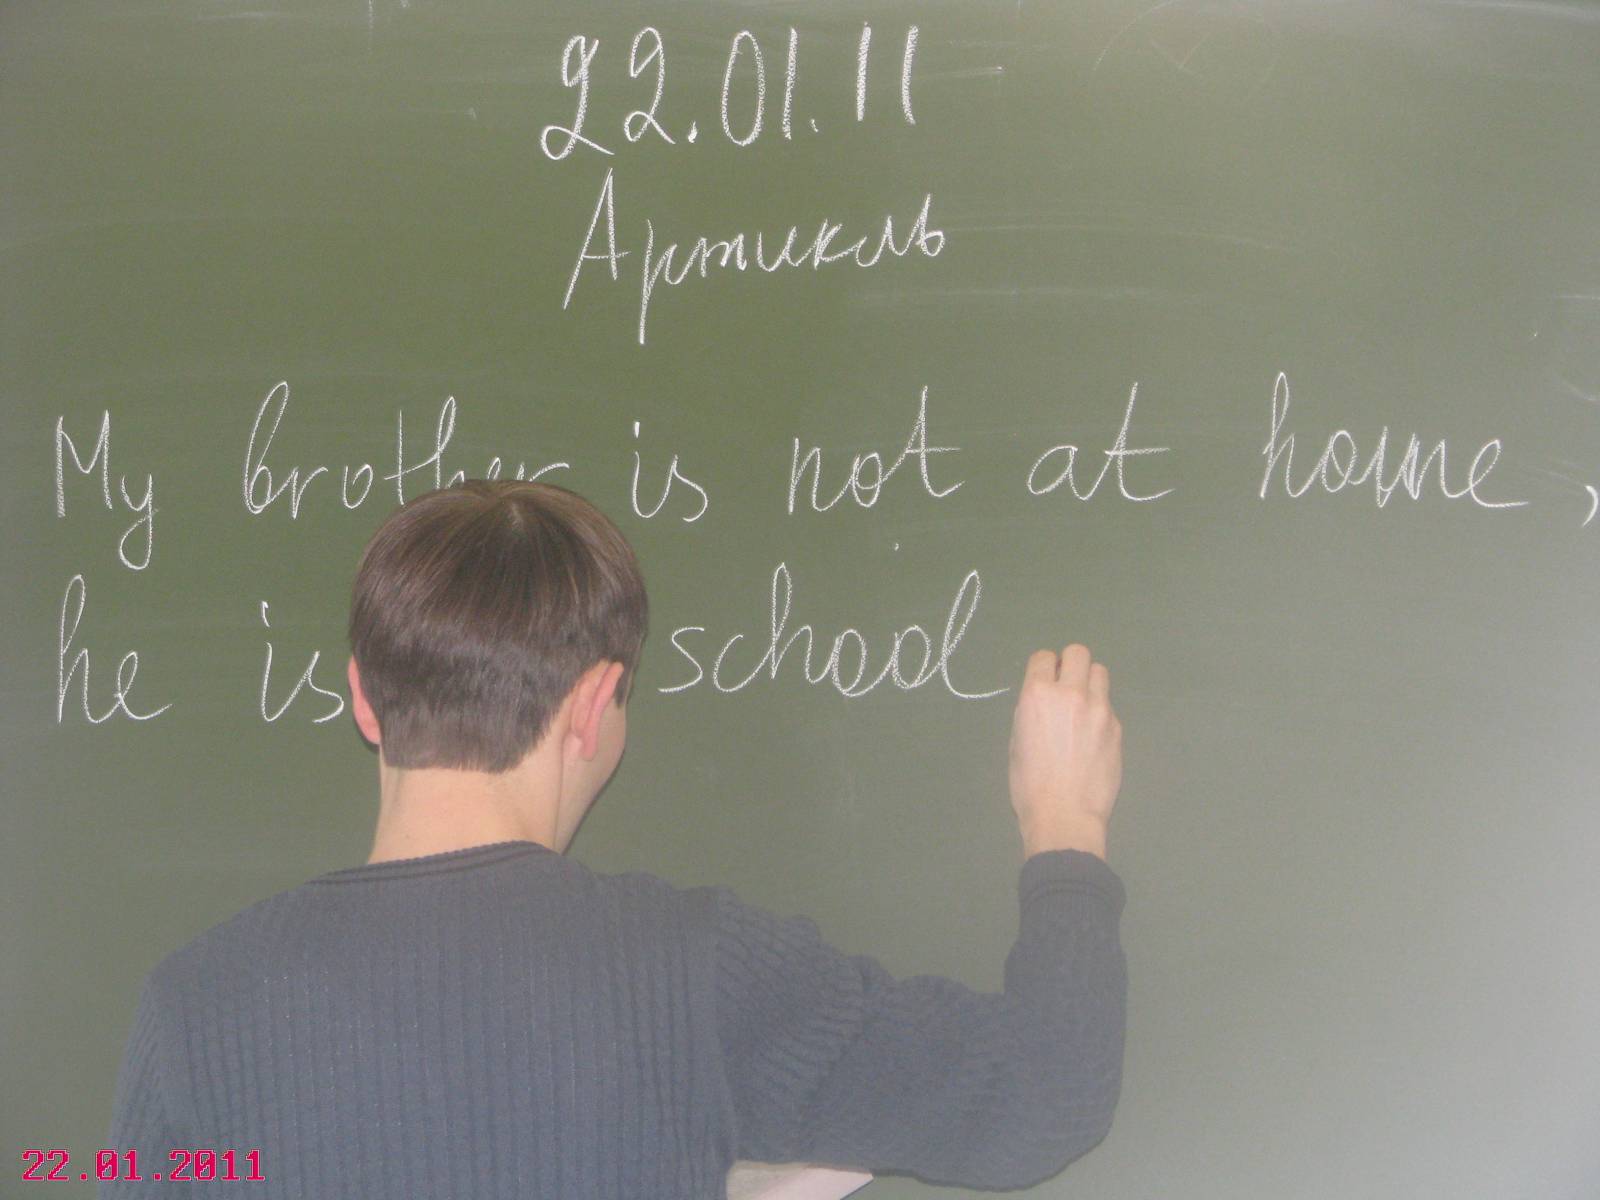 22.01.11
Артикль
My brother is not at home,
he is school
22.01.2011